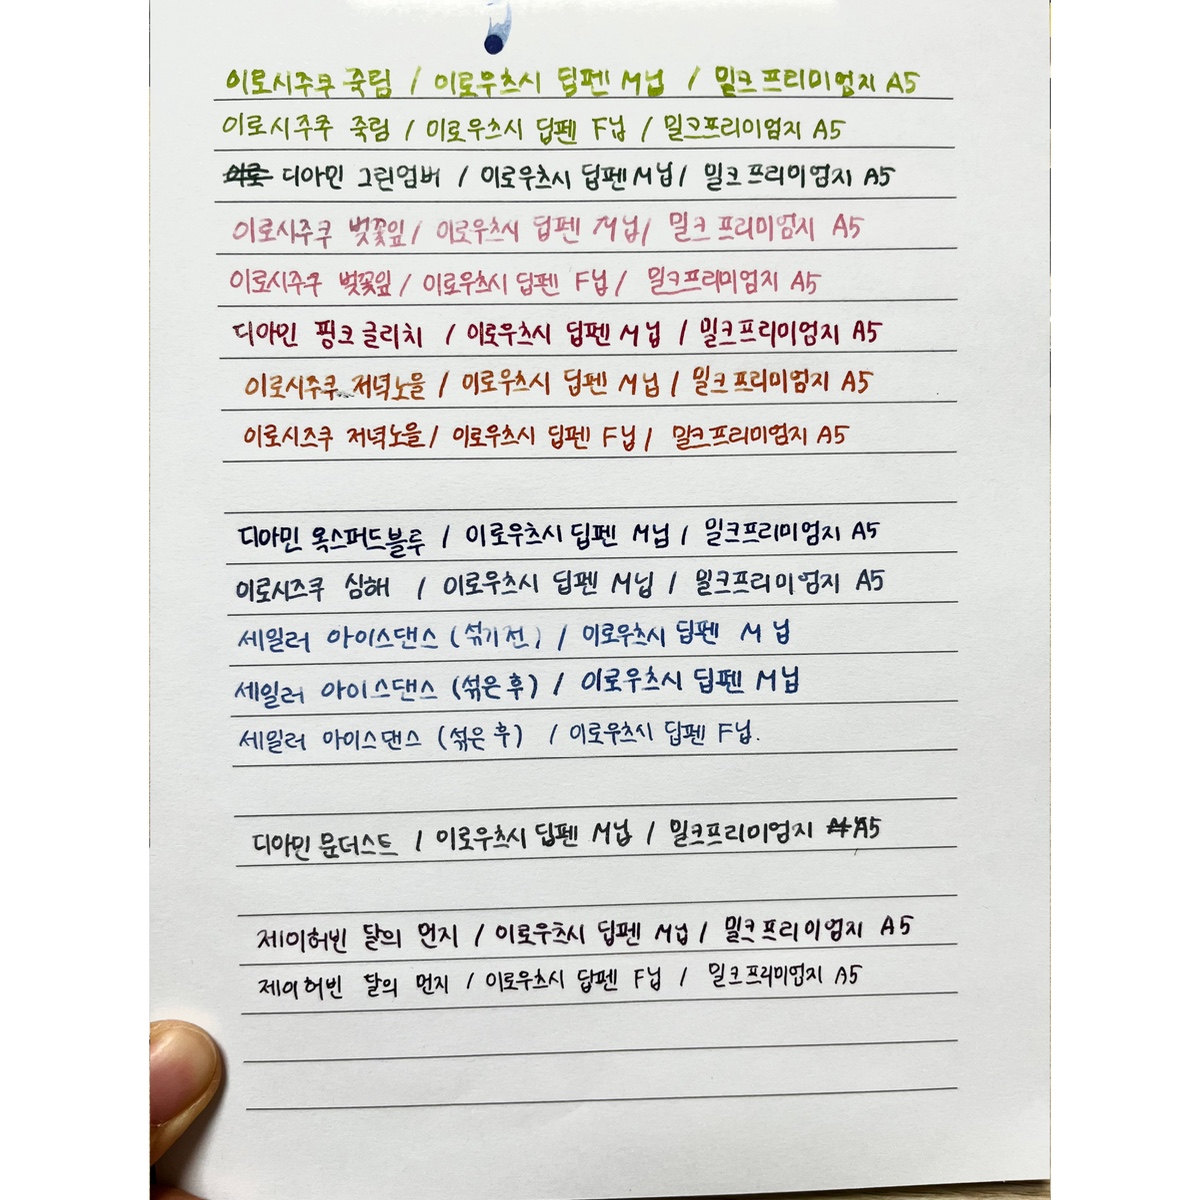 이로시주쿠 죽림 / 이로우츠시 딥펜 M닙 / 밀크프리미엄지 A5
이로시주쿠 죽림 / 이로우츠시 딥펜 F닙 / 밀크프리미엄지 A5
디아민 그린엄버 / 이로우츠시 딥펜 M닙 / 밀크 프리미엄지 A5
이로시주쿠 벚꽃잎 / 이로우츠시 딥펜 M닙 / 밀크 프리미엄지 A5
이로시주쿠 벚꽃잎 / 이로우츠시 딥펜 F닙 / 밀크프리미엄지 A5
디아민 핑크글리치 / 이로우츠시 딥펜 M닙 / 밀크프리미엄지 A5
이로시주쿠 저녁노을 / 이로우츠시 딥펜 M닙 / 밀크프리미엄지 A5
이로시즈쿠 저녁노을 / 이로우츠시 딥펜 F닙 / 밀크프리미엄지 A5
디아민 옥스퍼드블루 / 이로우츠시 딥펜 M닙 / 밀크프리미엄지 A5
이로시즈쿠 심해 / 이로우츠시 딥펜 M닙 / 밀크프리미엄지 A5
세일러 아이스댄스 (섞기전) / 이로우츠시 딥펜 M닙
세일러 아이스댄스 (섞은후) / 이로우츠시 딥펜 M닙
세일러 아이스댄스 (섞은후) / 이로우츠시 딥펜 F닙.
디아민 문더스트 / 이로우츠시 딥펜 M닙 / 밀크프리미엄지 A5
제이허빈 달의 먼지 / 이로우츠시 딥펜 M닙 / 밀크프리미엄지 A5
제이허빈 달의 먼지 / 이로우츠시 딥펜 F닙 / 밀크프리미엄지 A5